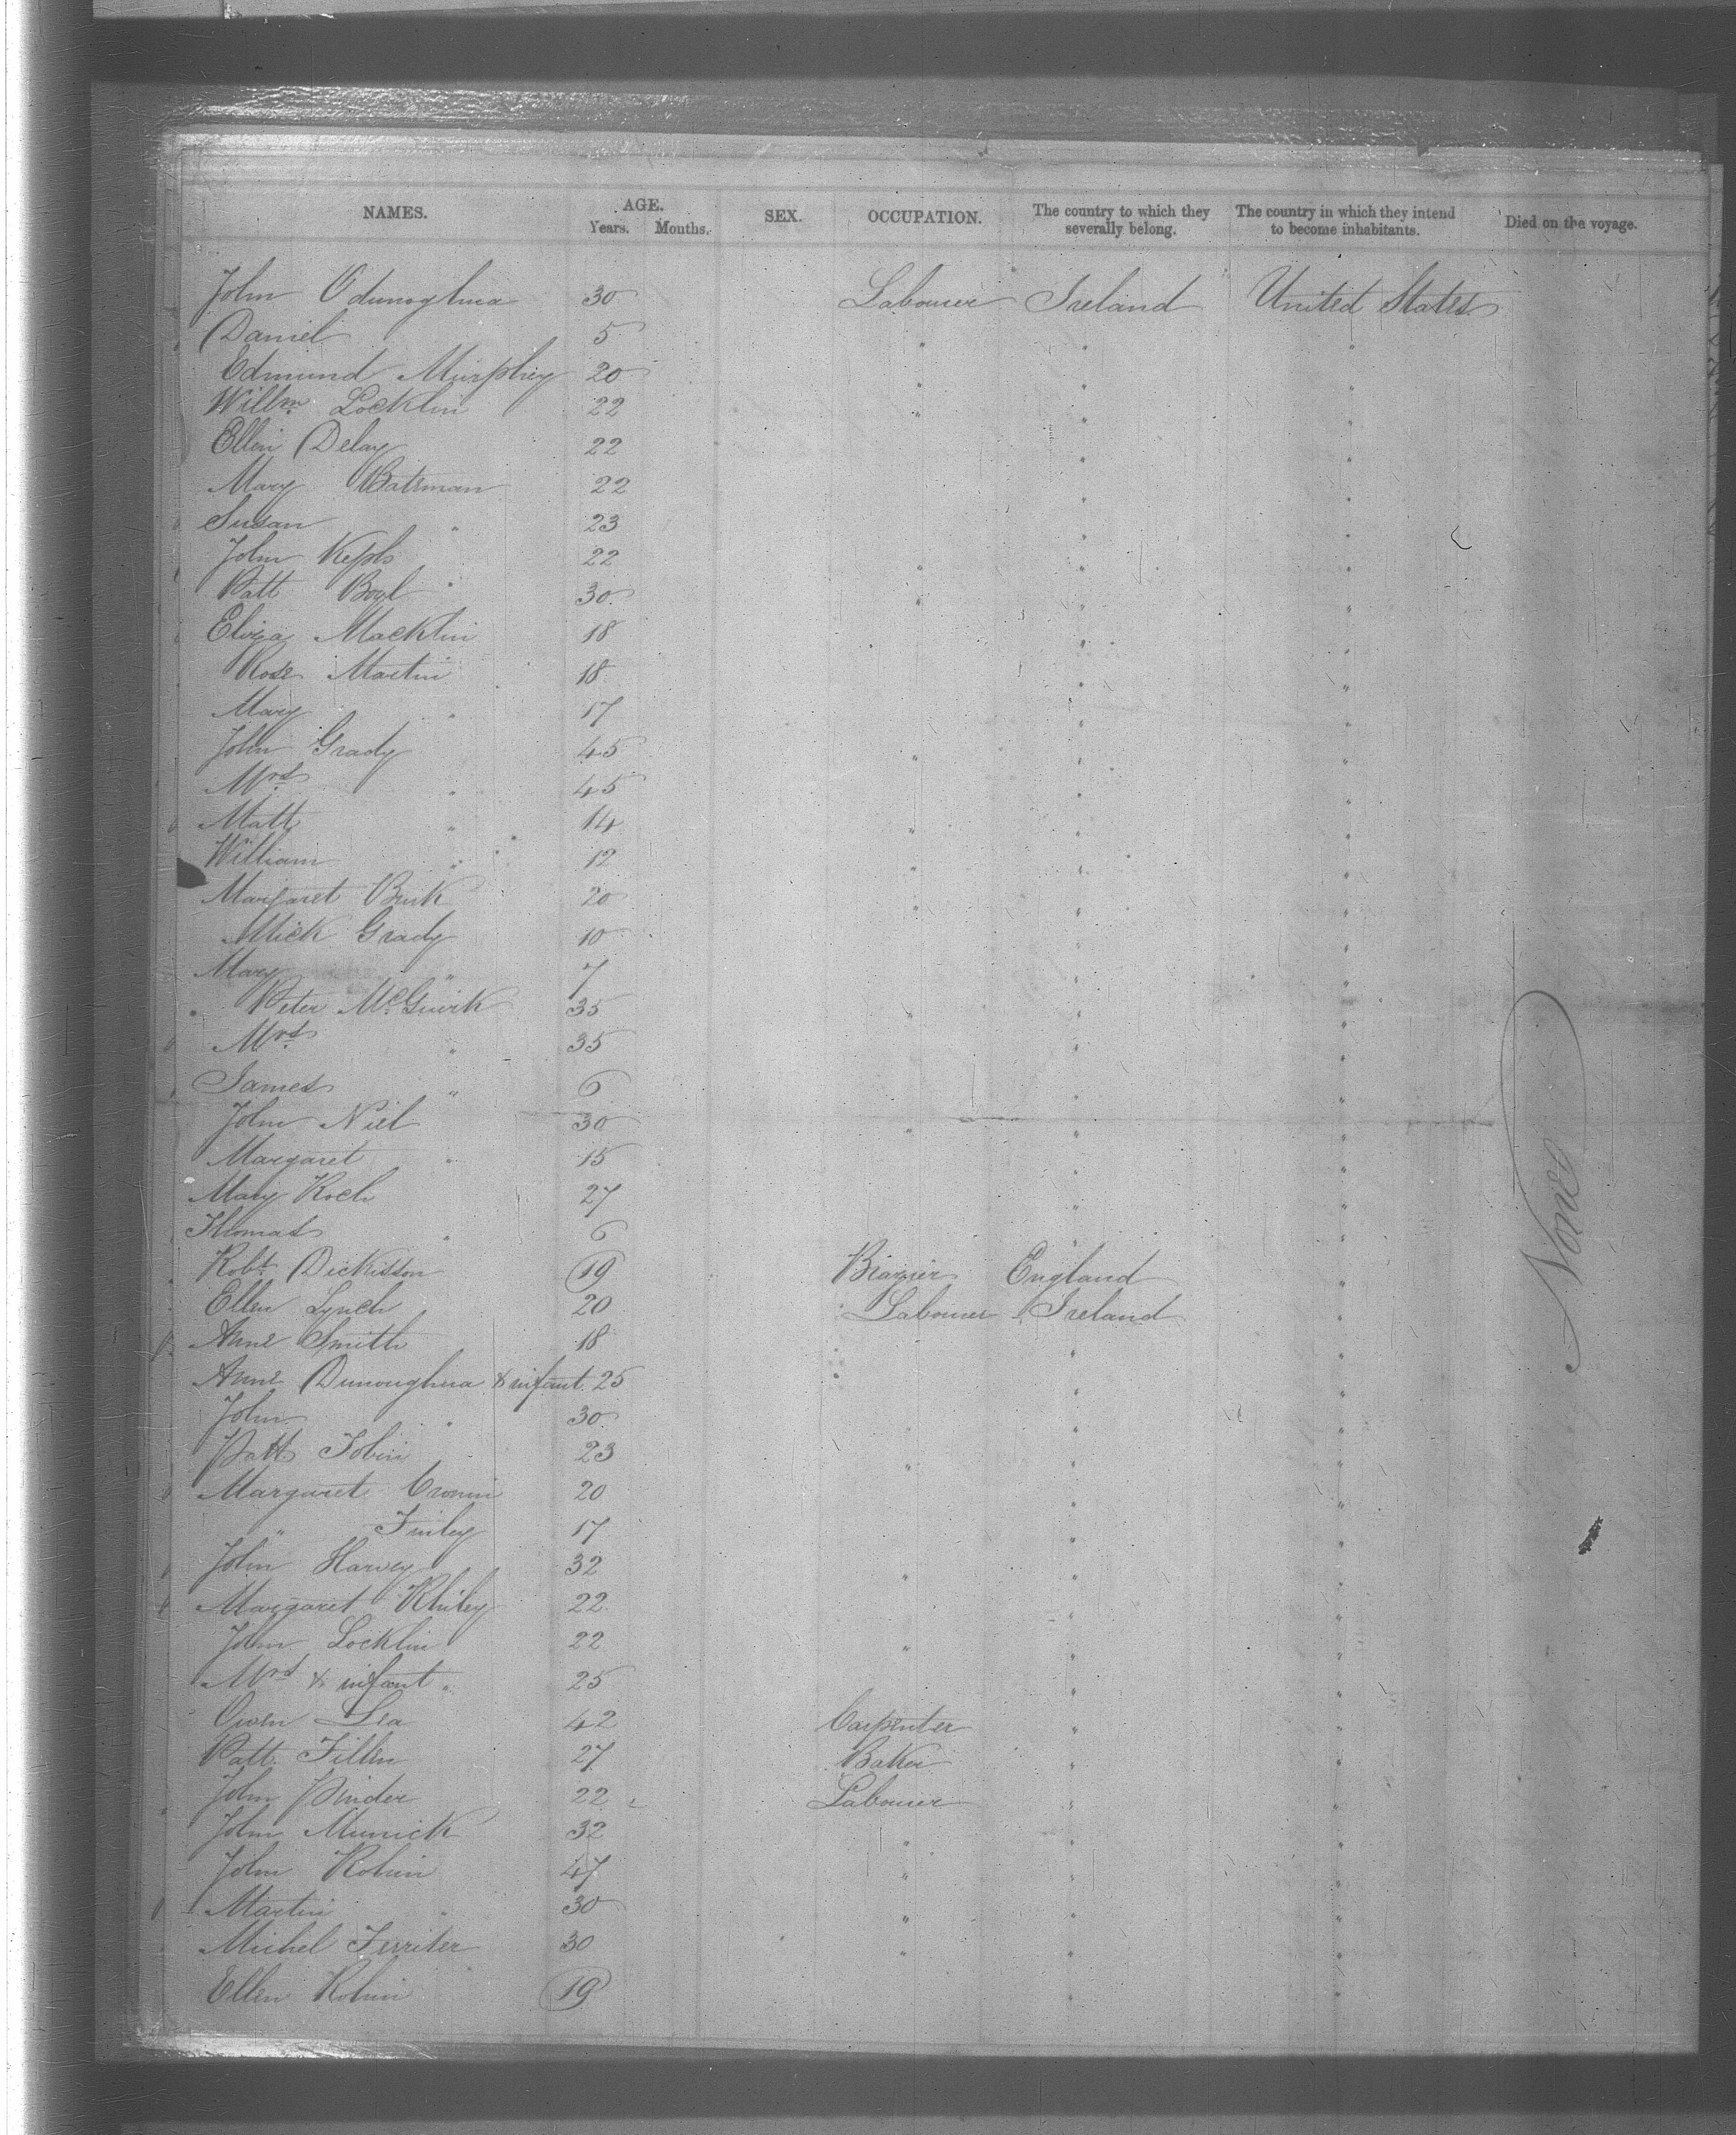 NAMES. AGE. Years. Months. SEX. OCCUPATION. The country to which they severally belong. The country in which they intend to become inhabitants. Died on the voyage.
John Odunoghua 30 Labourer Ireland United States
Daniel 5 " " "
Edmund Murphey 20 " " "
Willm Locklin 22 " " "
Ellin Delay 22 " "
Mary Bateman 22 " "
Susan " 23 " "
John 22 " " "
Patt Bogl 30 " " "
Eliza Macklin 18 " "
Rose Martin 18 " "
Mary " 17 " "
John Grady 45 " " "
Mrs " 45 " "
Matt " 14 " " "
William " 12 " " "
Margaret Burk 20 " " "
Mick Grady 10 " "
Mary " 7 " "
Peter McGuirk 35 " " "
Mrs " 35 " "
James " 6 " "
John Niel 30 " " "
Margaret " 15 " "
Mary Roch 27 " "
Thomas " 6 " "
Robt Dickisson 19 Brazier England "
Ellen Lynch 20 Labourer Ireland "
Anne Smith 18 " "
Anne Dunoughua & infant 25 " "
John " 30 " " "
Patt Tobin 23 " " "
Margaret Cronin 20 " "
" Finley 17 " "
John Harvey 32 " " "
Margaret Rhiley 22 " "
John Locklin 22 " " "
Mrs & infant " 25 " "
Owen Lea 42 Carpenter " "
Patt Fillin 27 Baker " "
John Pinder 22 Labourer " "
John Munick 32 " " "
John Robin 47 " " "
Martin " 30 " " "
Michel Ferriter 30 " " "
Ellen Robin 19 " "
None